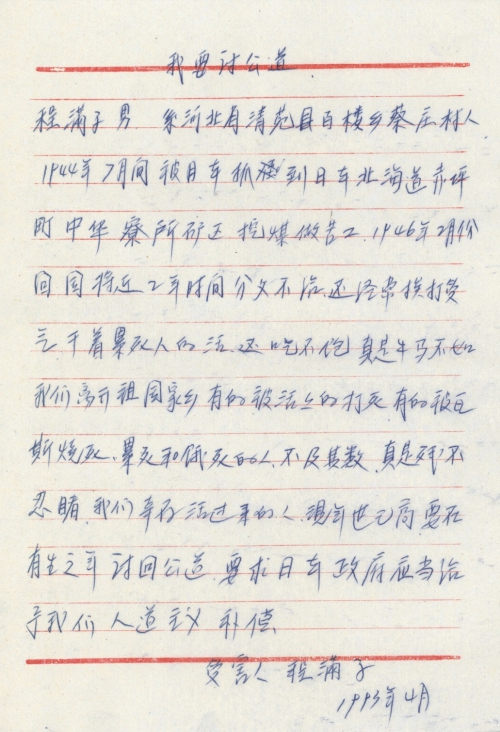 我要讨公道
程满子男 系河北省清苑县百楼乡蔡庄村人
1944年7月间被日本抓 到日本北海道赤坪
町中华寮所矿区挖煤做苦工.1946年2月份
回国将近2年时间分文不给.还经常挨打受
气干着累死人的活.还吃不饱真是牛马不如
我们离开祖国家乡有的被活活的打死有的被瓦
斯烧死、累死和饿死的人.不及其数.真是残不
忍睹.我们幸存活过来的人.现年也已高.要在
有生之年讨回公道.要求日本政府应当给
予我们人道主义补偿.
受害人程满子
1993年4月